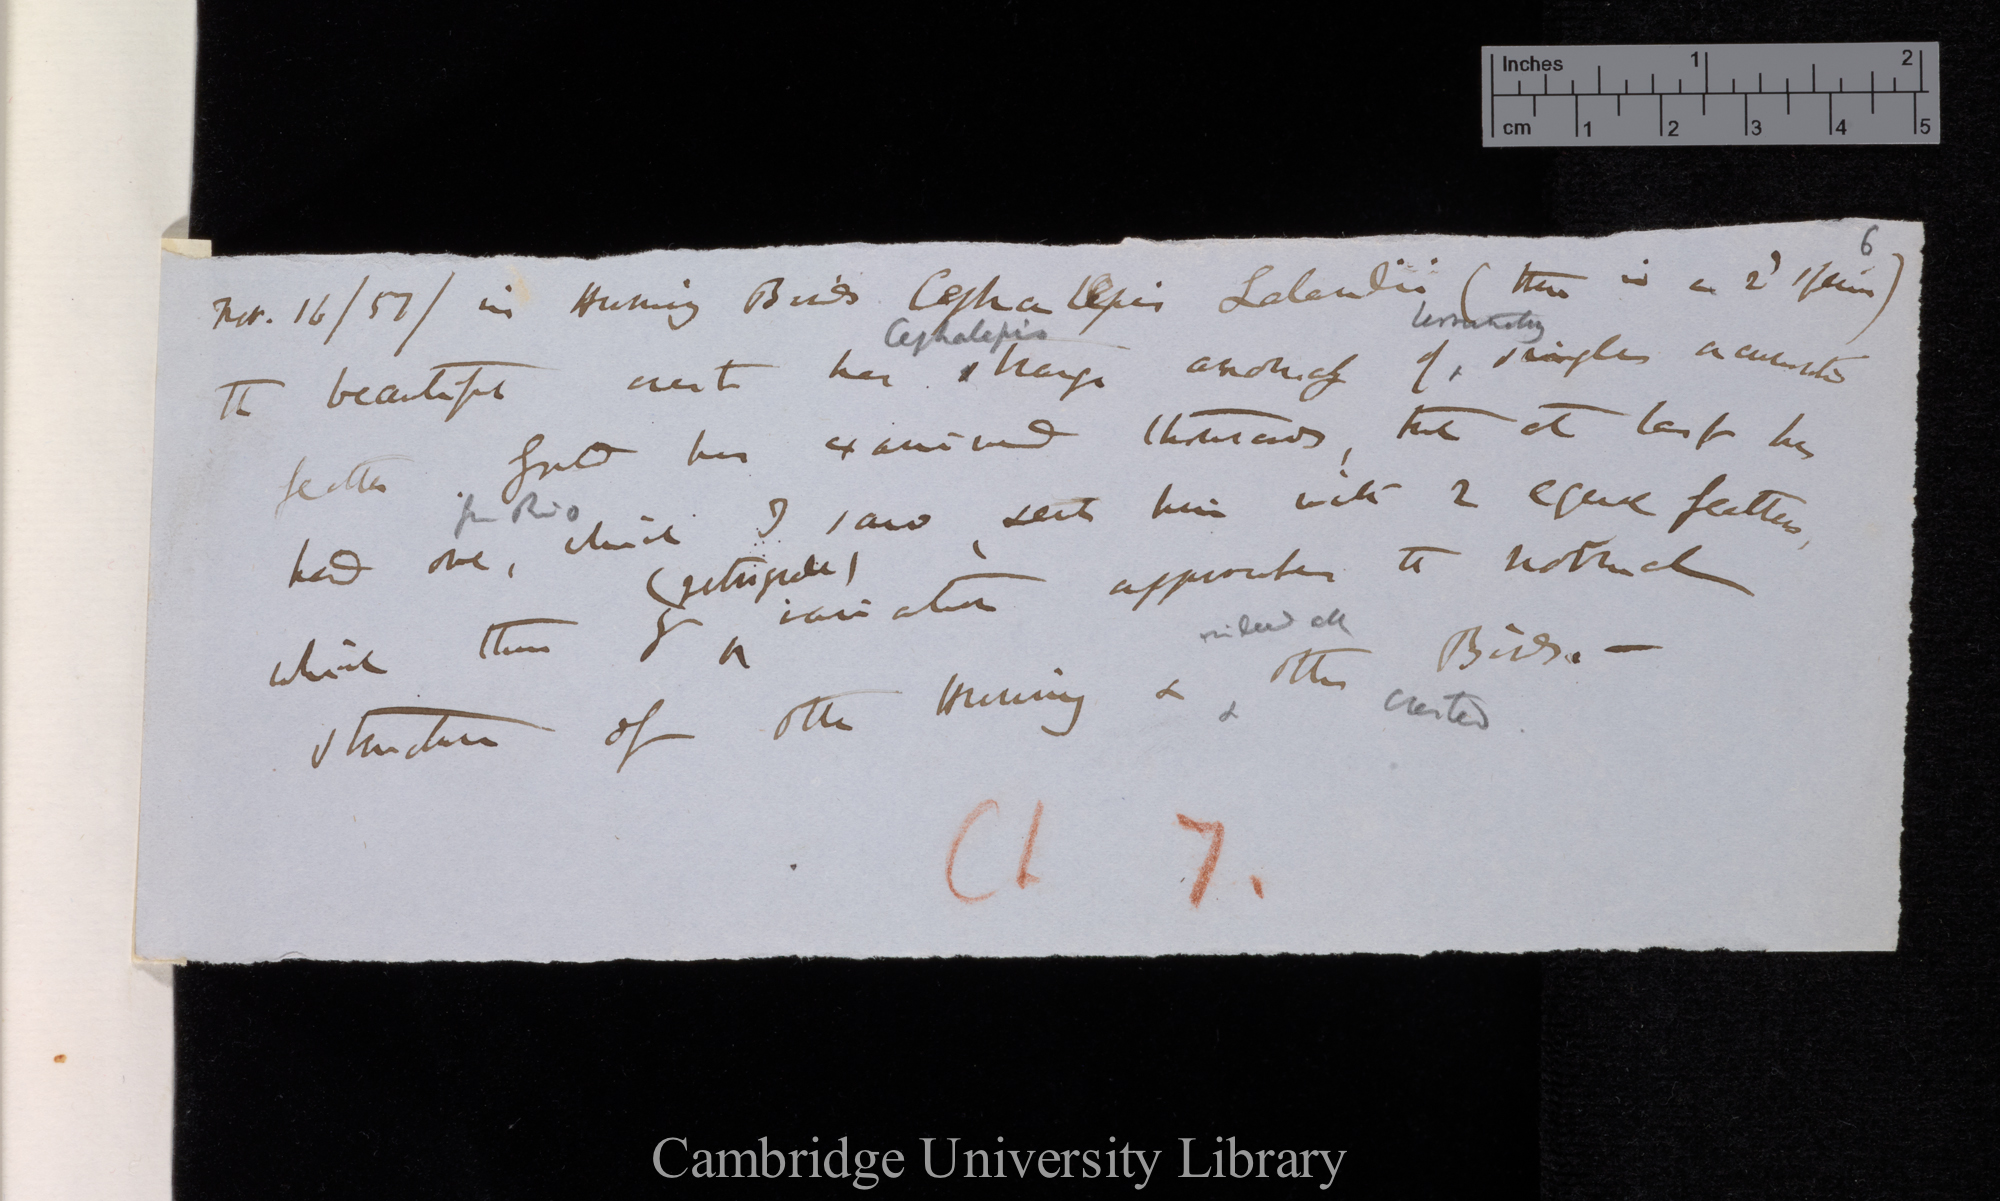 6
Nov. 16/57/ in Humming Birds Cephalepis Lalandii (there is a 2d species)
Cephalepis
The beautiful crest has strange anomaly of, single
feather Gould has examined thousands, but at last has
fr Rio
had one, which I saw, sent him with 2 equal feathers,
(retrograde)
which thus by variation approaches to normal
indeed all
structure of other Humming & other Birds. —
& crested
Ch 7.
Inches 1 2
cm 1 2 3 4 5
Cambridge University Library